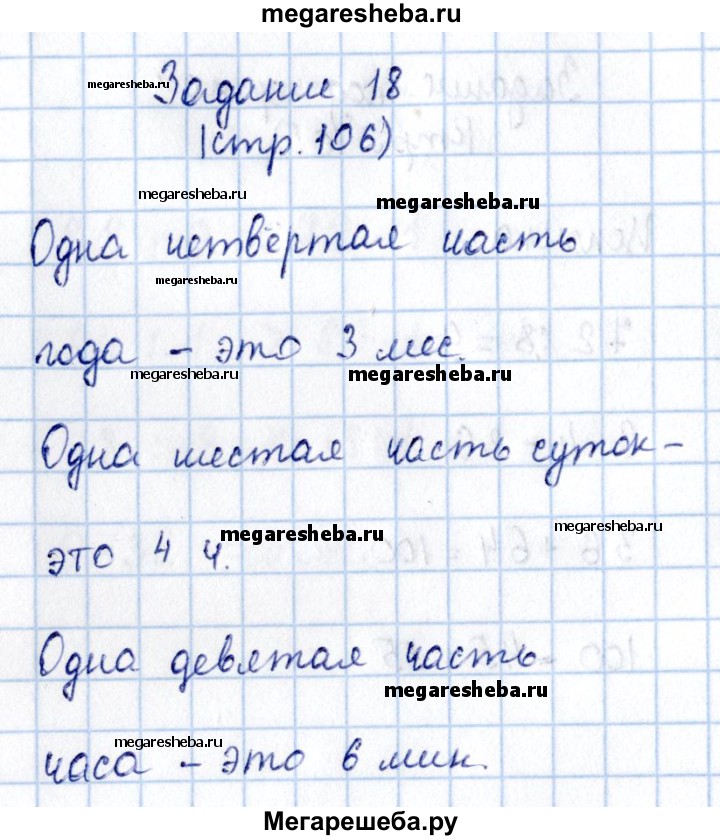 megaresheba.ru
Задание 18
megaresheba.ru
(стр. 106)
megaresheba.ru
megaresheba.ru
Одна четвёртая часть
megaresheba.ru
года - это 3 мес.
megaresheba.ru
megaresheba.ru
Одна шестая часть суток -
megaresheba.ru
megaresheba.ru
это 4 ч.
Одна девятая часть
megaresheba.ru
megaresheba.ru
часа - это 6 мин.
Мегарешеба.ру